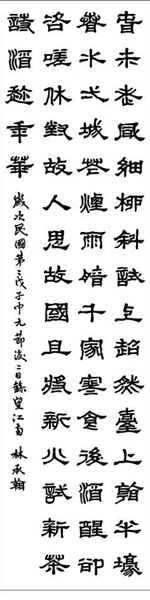 旾未老風細柳斜試上超然臺上看半壕
旾水弌城花煙雨暗千家寒食後酒醒卻
咨嗟休對故人思故國且將新火試新茶
詩酒趁年華
歲次民國第二戊子中元節後二日錄望江南 林承翰